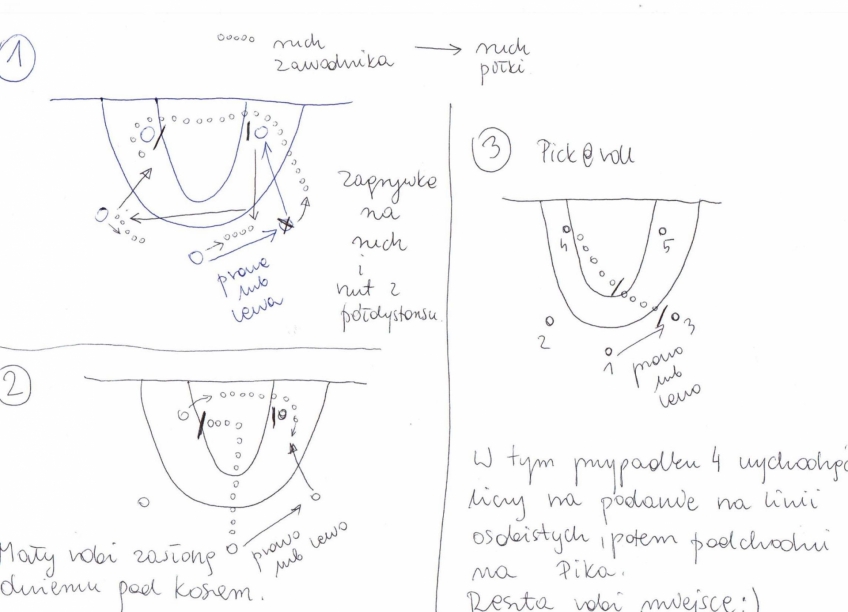 ooooo ruch
zawodnika
ruch
piłki
1
Zagrywka
na
ruch
i
rzut z
półdystansu.
prawo
lub
lewo
2
prawo lub lewo
Mały robi zasłonę
dużemu pod koszem.
3 Pick@roll
4
5
2
3
1
prawo
lub
lewo
W tym przypadku 4 wychodząc
liczy na podanie na linii
osobistych, potem podchodzi
na Pika.
Reszta robi miejsce:)